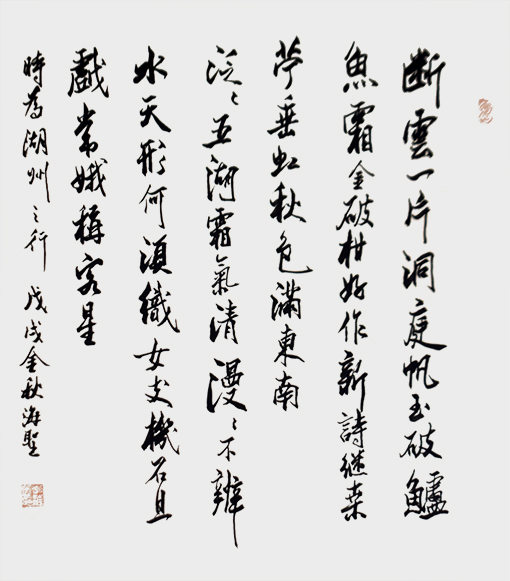 断雲一片洞庭帆玉破鱸
魚霜金破柑好作新詩継桒
苧垂虹秋色滿東南
泛〻五湖霜氣清漫〻不辨
水天形何湏織女支機石且
戲常娥稱客星
時為湖州之行 戊戌金秋海聖